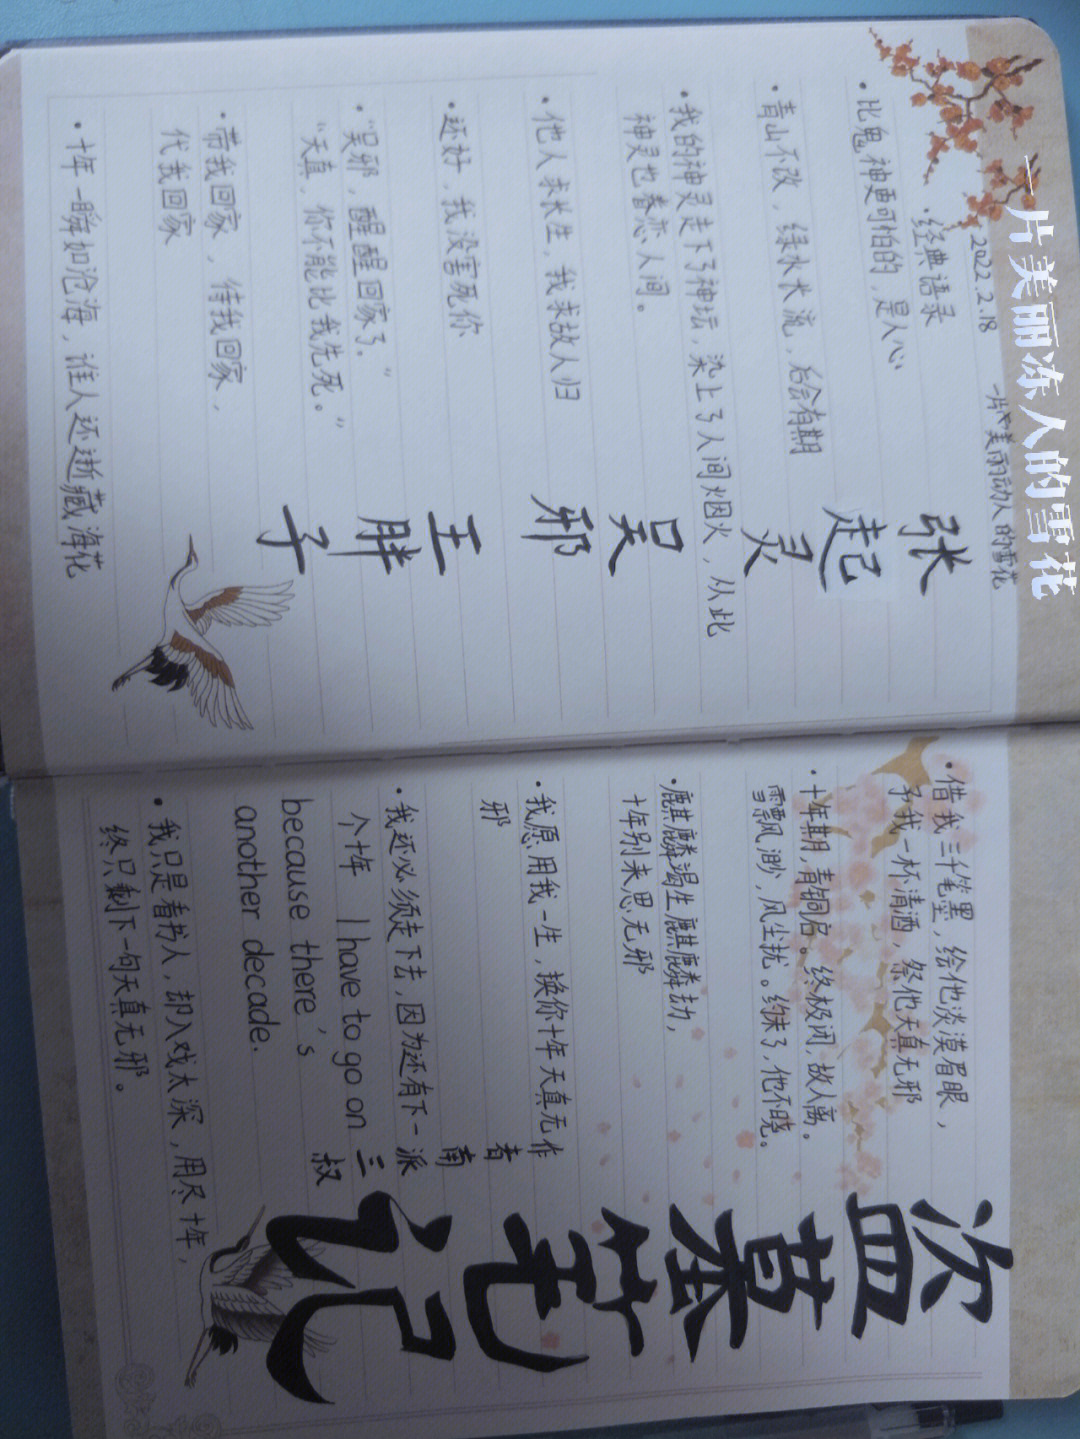 一片美丽冻人的雪花
2022.2.18 一片美丽动人的雪花
·经典语录
·比鬼神更可怕的，是人心
·青山不改，绿水长流，后会有期
·我的神灵走下了神坛，染上了人间烟火，从此
神灵也眷恋人间。
·他人求长生，我求故人归
·还好，我没害死你
·“吴邪，醒醒回家了。”
“天真，你不能比我先死。”
·带我回家，待我回家，
代我回家
·十年一瞬如沧海，谁人还逝藏海花
张起灵
吴邪
王胖子
·借我三千笔墨，绘他淡漠眉眼，
予我一杯清酒，祭他天真无邪
·十年期，青铜启。终极闭，故人离。
雪飘渺，风尘扰。约未了，他不晓。
·麒麟渴生麒麟劫，
十年别来思无邪
·我愿用我一生，换你十年天真无
邪
·我还必须走下去，因为还有下一
个十年 I have to go on
because there's
another decade.
·我只是看书人，却入戏太深，用尽十年，
终只剩下一句天真无邪。
作者
南派三叔
盗墓笔记